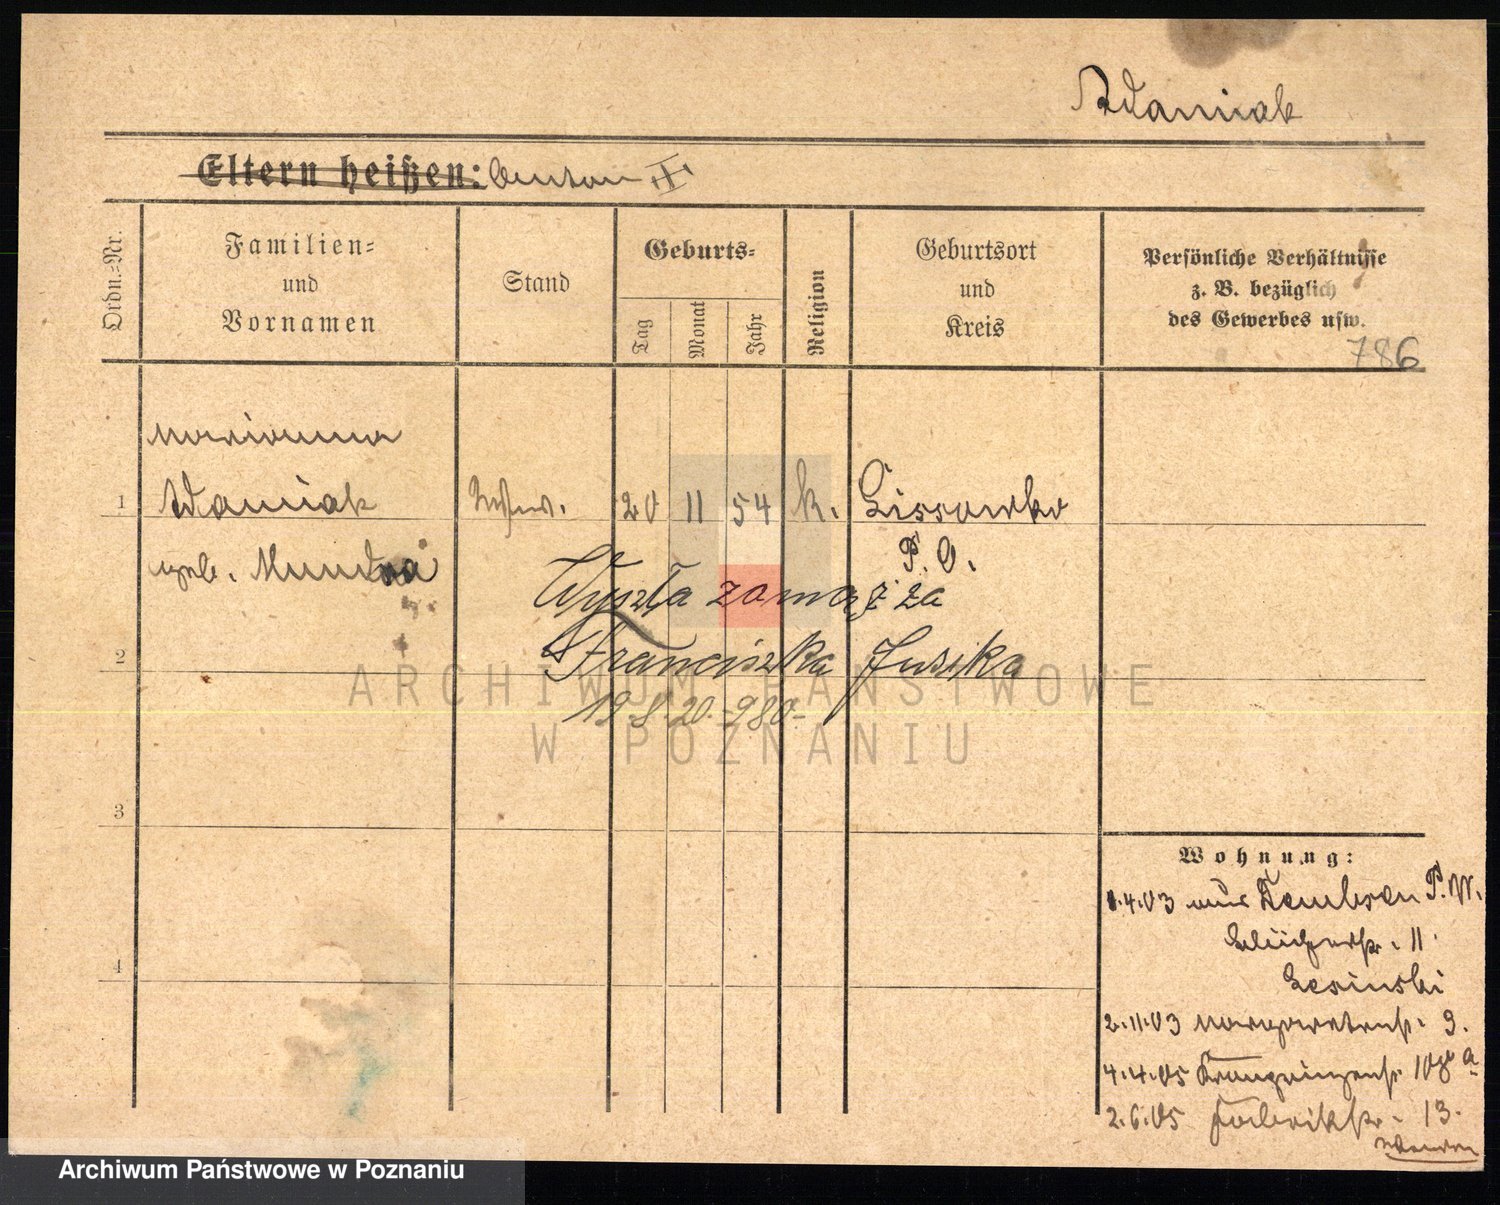 Adaniak
Eltern heißen:
Ordn.-Nr.
Familien-
und
Vornamen
Stand
Geburts-
Tag
Monat
Jahr
Religion
Geburtsort
und
Kreis
Persönliche Verhältnisse
z. B. bezüglich
des Gewerbes usw.
786
Marianna
1 Adaniak Wwe. 20 11 54 k. Lissowko
P. O.
geb.
Wyszła zamąż za
2 Franciszka Jusika
19.8.20.-980-
3
4
Wohnung:
1.4.03 aus P. W.
Blücherstr. 11
Lesinski
2.11.03 Margaretenstr. 9.
4.4.05 Kronprinzenstr. 108 a
2.6.05 Fabrikstr. 13.
Wenden
ARCHIWUM PAŃSTWOWE
W POZNANIU
Archiwum Państwowe w Poznaniu